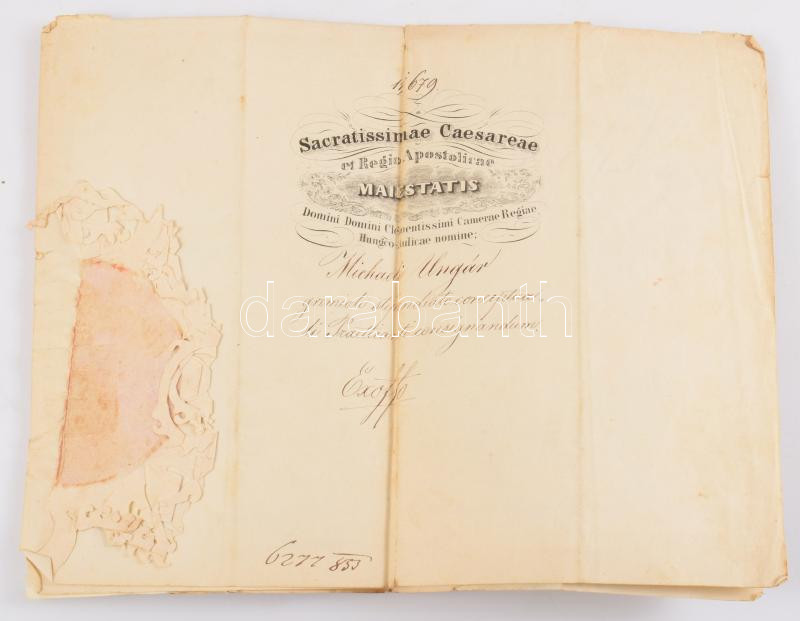 11,679.
Sacratissimae Caesareae
et Regio Apostolicae
MAIESTATIS
Domini Domini Clementissimi Camerae Regiae
Hungco-aulicae nomine;
Michaeli Ungár
consignandum.
Exoffo
6277/853
darabanth